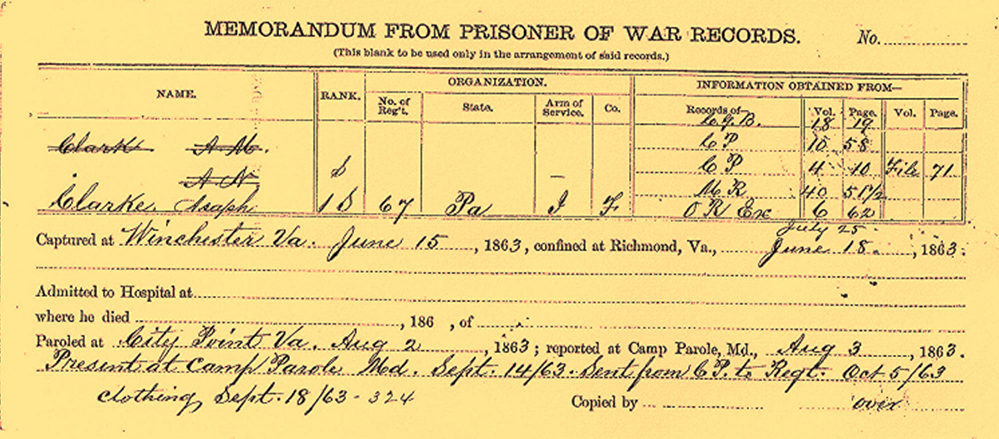 MEMORANDUM FROM PRISONER OF WAR RECORDS. No.
(This blank to be used only in the arrangement of said records.)
NAME. RANK. ORGANIZATION. INFORMATION OBTAINED FROM—
No. of Reg't. State. Arm of Service. Co. Records of— Vol. Page. Vol. Page.
C.G.B. 18 19
Clark A M. C P 10 58
A N S C P 4 10 File 71
M R 40 51/2
Clarke Asaph 1 S 67 Pa I F. O R Ex 6 62
July 25
Captured at Winchester Va. June 15, 1863, confined at Richmond, Va., June 18., 1863.
Admitted to Hospital at
where he died , 186 , of
Paroled at City Point Va. Aug 2, 1863; reported at Camp Parole, Md., Aug 3, 1863.
Present at Camp Parole Md. Sept. 14/63. Sent from C.P. to Regt. Oct 5/63
clothing Sept. 18/63 - 324 Copied by over